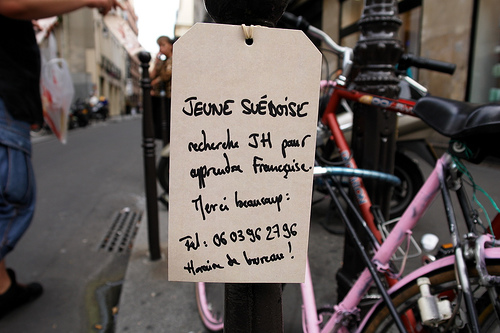 JEUNE SUÉDOISE
recherche JH pour
apprendre Française.
Merci beaucoup:
Tel: 06 03 96 27 96
Horaire de bureau!